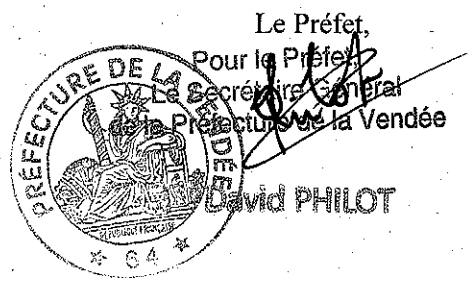 Le Préfet,
Pour le Préfet,
Le Secrétaire Général
de la Préfecture de la Vendée
David PHILOT
PRÉFECTURE DE LA VENDÉE
RÉPUBLIQUE FRANÇAISE
* 64 *